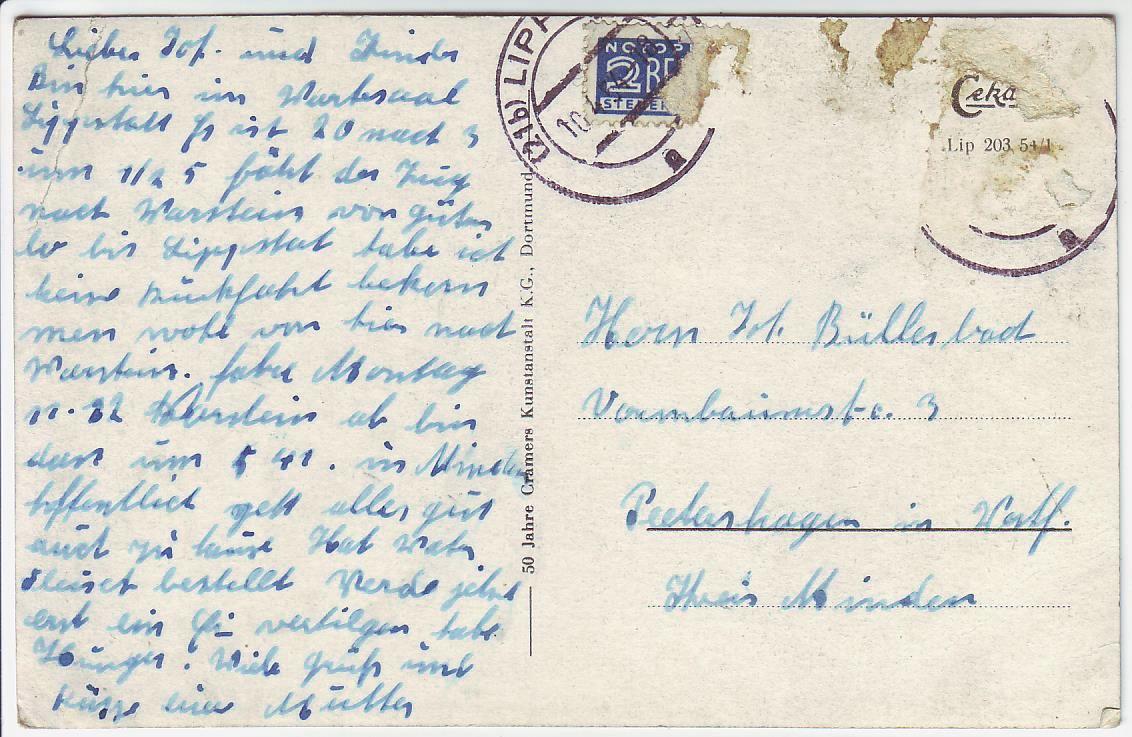 Lieber Jos. und Kinder
Bin hier im Wartesaal
Lippstatt Es ist 20 nach 3
um 1/2 5 fährt der Zug
nach Warstein von güters
lo bis Lippstat habe ich
keine Rückfahrt bekom
men wohl von hier nach
Warstein. fahre Montag
11.32 Warstein ab bin
dan um 5 41. in Minden
hffentlict gett alles gut
auch zu hause Hat Vater
Fleisch bestellt Werde jetzt
erst ein Ei vertilgen habe
Hunger. Viele Grüß und
Küsse eure Mutter
50 Jahre Cramers Kunstanstalt K.G., Dortmund
(21b) LIPP
10
a
NOTOP
2 BE
STEUER
Ceka
Lip 203 54/1
a
Herrn Jos. Büllesbach
Vormbaumstr. 3
Petershagen in Westf.
Kreis Minden